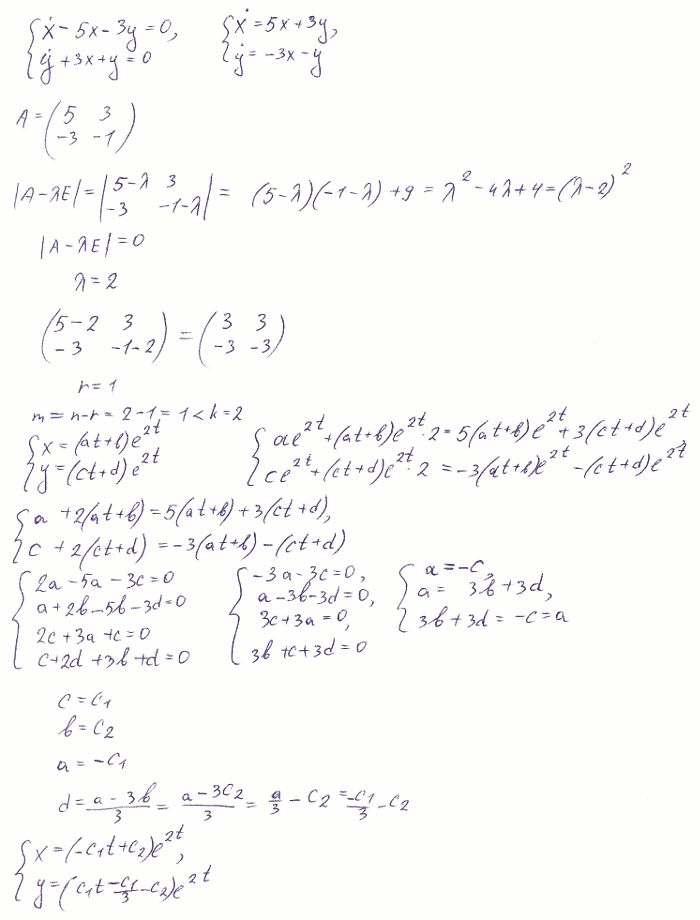 {ẋ - 5x - 3y = 0, {ẋ = 5x + 3y,
{ẏ + 3x + y = 0 {ẏ = -3x - y
A = (5 3
-3 -1)
|A - λE| = |5-λ 3
-3 -1-λ| = (5-λ)(-1-λ) + 9 = λ² - 4λ + 4 = (λ-2)²
|A - λE| = 0
λ = 2
(5-2 3
-3 -1-2) = (3 3
-3 -3)
r = 1
m = n - r = 2 - 1 = 1 < k = 2
{x = (at+b)e^{2t} {ae^{2t} + (at+b)e^{2t}·2 = 5(at+b)e^{2t} + 3(ct+d)e^{2t},
{y = (ct+d)e^{2t} {ce^{2t} + (ct+d)e^{2t}·2 = -3(at+b)e^{2t} - (ct+d)e^{2t}
{a + 2(at+b) = 5(at+b) + 3(ct+d),
{c + 2(ct+d) = -3(at+b) - (ct+d)
{2a - 5a - 3c = 0 {-3a - 3c = 0, {a = -c,
a + 2b - 5b - 3d = 0 a - 3b - 3d = 0, a = 3b + 3d,
2c + 3a + c = 0 3c + 3a = 0, 3b + 3d = -c = a
c + 2d + 3b + d = 0 3b + c + 3d = 0
c = c₁
b = c₂
a = -c₁
d = (a - 3b)/3 = (a - 3c₂)/3 = a/3 - c₂ = -c₁/3 - c₂
{x = (-c₁t + c₂)e^{2t},
{y = (c₁t - c₁/3 - c₂)e^{2t}